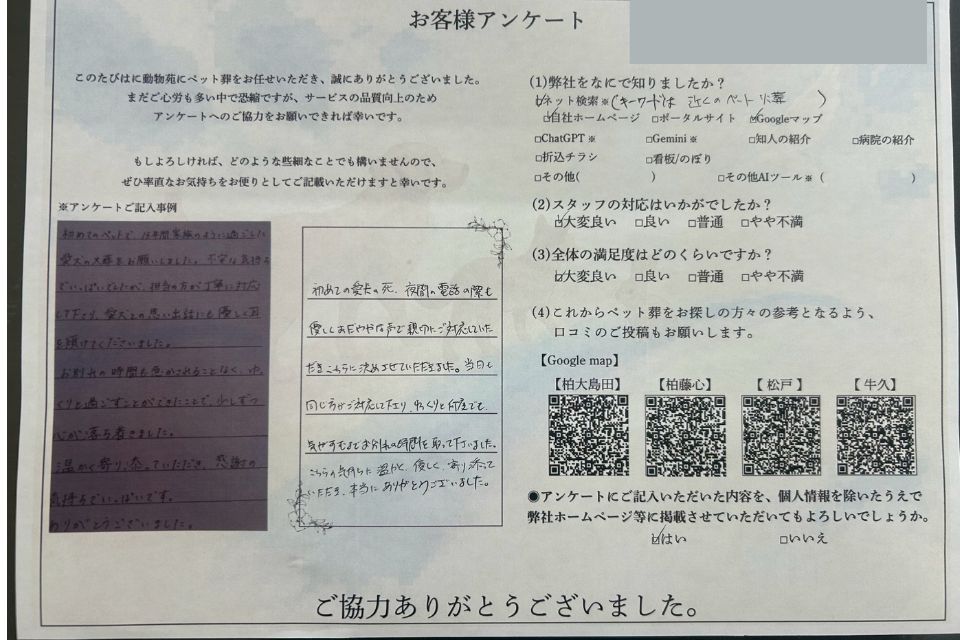 お客様アンケート
このたびはに動物苑にペット葬をお任せいただき、誠にありがとうございました。
まだご心労も多い中で恐縮ですが、サービスの品質向上のため
アンケートへのご協力をお願いできれば幸いです。
もしよろしければ、どのような些細なことでも構いませんので、
ぜひ率直なお気持ちをお便りとしてご記載いただけますと幸いです。
※アンケートご記入事例
初めてのペットで、15年間家族のように過ごした
愛犬の火葬をお願いしました。不安な気持ち
でいっぱいでしたが、担当の方が丁寧に対応
して下さり、愛犬との思い出話にも優しく耳
を傾けてくださいました。
お別れの時間も急かされることなく、ゆっ
くりと過ごすことができたことで、少しずつ
心が落ち着きました。
温かく寄り添っていただき、感謝の
気持ちでいっぱいです。
ありがとうございました。
初めての愛犬の死、夜間の電話の際も
優しくおだやかな声で親切にご対応していた
だきこちらに決めさせていただきました。当日も
同じ方がご対応して下さり、ゆっくりと何度でも、
気がすむまでお別れの時間を取って下さいました。
こちらの気持ちに温かく、優しく、寄り添って
いただき、本当にありがとうございました。
(1)弊社をなにで知りましたか？
☑ネット検索※(キーワードは 近くのペット火葬 )
☑自社ホームページ □ポータルサイト ☑Googleマップ
□ChatGPT※ □Gemini※ □知人の紹介 □病院の紹介
□折込チラシ □看板/のぼり
□その他( ) □その他AIツール※( )
(2)スタッフの対応はいかがでしたか？
☑大変良い □良い □普通 □やや不満
(3)全体の満足度はどのくらいですか？
☑大変良い □良い □普通 □やや不満
(4)これからペット葬をお探しの方々の参考となるよう、
口コミのご投稿もお願いします。
【Google map】
【柏大島田】 【柏藤心】 【松戸】 【牛久】
●アンケートにご記入いただいた内容を、個人情報を除いたうえで
弊社ホームページ等に掲載させていただいてもよろしいでしょうか。
☑はい □いいえ
ご協力ありがとうございました。